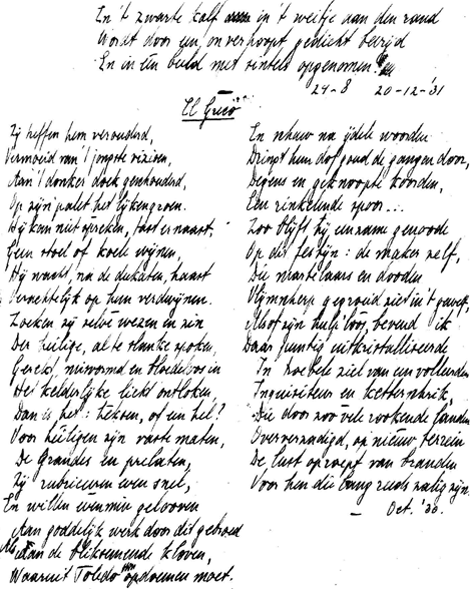 En 't zwarte kalf in 't weitje aan den rand
Wordt door een onverhoopt gedicht bevrijd
En in één beeld met rintels opgenomen.
24-8 20-12-'31
El Greco
Zij treffen hem verouderd,
Vermoeid van 't jongste vizioen,
Aan 't donker doek genhouderd,
Op zijn palet het lijkengroen.
Hij kan niet spreken, tast ernaast,
Geen stoel of koele wijnen,
Hij wacht, na de dukaten, haast
Verachtelijk op hun verdwijnen.
Zoeken zij zelve wezen en zin
Der heilige, al te slanke spoken,
Gerekt, misvormd en bloedeloos in
Het kelderlijke licht ontloken,
Dan is het: heksen, of een hel?
Voor heiligen zijn vaste maten,
De Grandes en prelaten,
Zij rubriceeren even snel,
En willen evenmin gelooven
Aan goddelijk werk door dit gebroed
Als aan de bliksemende kloven,
Waaruit Toledo opdoemen moet.
En schuw na ijdele woorden
Dringt hun dof goud de gangen door,
Degens en geknoopte koorden,
Een rinkelende spoor...
Zoo blijft hij eenzame genoode
Op dit festijn: de maker zelf,
Die martelaars en dooden
Olijmscherp gegroeid ziet in 't gewelf,
Alsof zijn hulploos, bevend ik
Daar puntig uitkristalliseerde
In roebele ziel van een volleerden
Inquisiteur en ketterschrik,
Die door zoo vele rookende landen
Oververzadigd, op nieuw bezien
De lust oproept van branden
Voor hen die bang reeds zalig zijn.
Oct. '30.